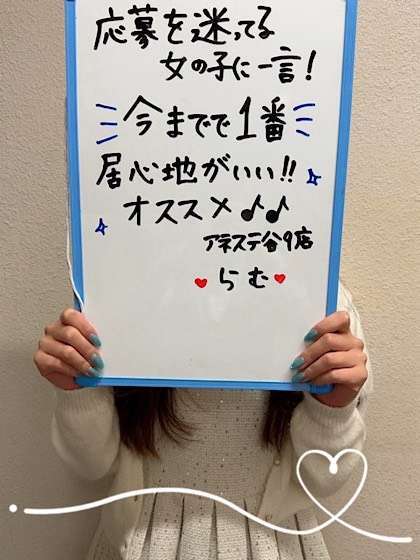 応募を迷ってる
女の子に一言!
今までで1番
居心地がいい!!
オススメ♪♪
アネステ谷9店
らむ